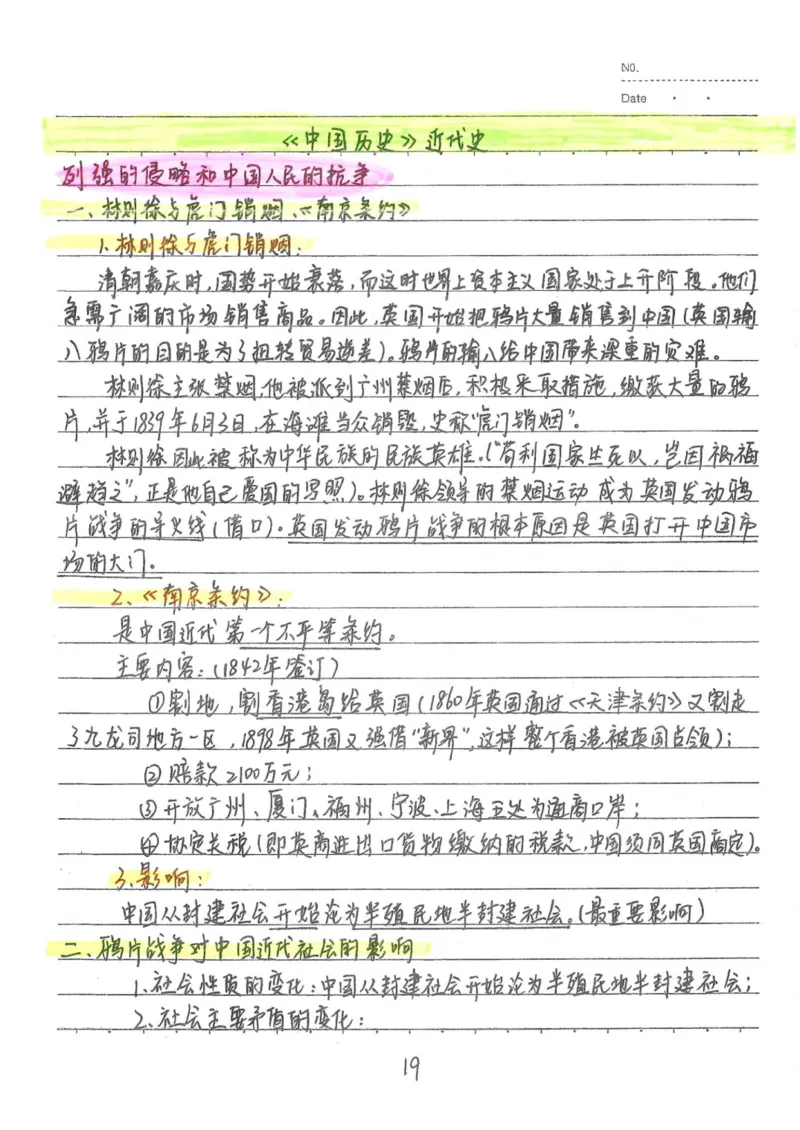 NO.
Date
《中国历史》近代史
列强的侵略和中国人民的抗争
一、林则徐与虎门销烟、《南京条约》
1.林则徐与虎门销烟：
清朝嘉庆时，国势开始衰落，而这时世界上资本主义国家处于上升阶段。他们
急需广阔的市场销售商品。因此，英国开始把鸦片大量销售到中国（英国输
入鸦片的目的是为了扭转贸易逆差）。鸦片的输入给中国带来深重的灾难。
林则徐主张禁烟，他被派到广州禁烟后，积极采取措施，缴获大量的鸦
片，并于1839年6月3日，在海滩当众销毁，史称“虎门销烟”。
林则徐因此被称为中华民族的民族英雄。（“苟利国家生死以，岂因祸福
避趋之”，正是他自己爱国的写照）。林则徐领导的禁烟运动成为英国发动鸦
片战争的导火线（借口）。英国发动鸦片战争的根本原因是英国打开中国市
场的大门。
2、《南京条约》：
是中国近代第一个不平等条约。
主要内容：（1842年签订）
①割地，割香港岛给英国（1860年英国通过《天津条约》又割走
了九龙司地方一区，1898年英国又强借“新界”，这样整个香港被英国占领）；
②赔款2100万元；
③开放广州、厦门、福州、宁波、上海五处为通商口岸；
④协定关税（即英商进出口货物缴纳的税款，中国须同英国商定）。
3、影响：
中国从封建社会开始沦为半殖民地半封建社会。（最重要影响）
二、鸦片战争对中国近代社会的影响
1、社会性质的变化：中国从封建社会开始沦为半殖民地半封建社会；
2、社会主要矛盾的变化：
19